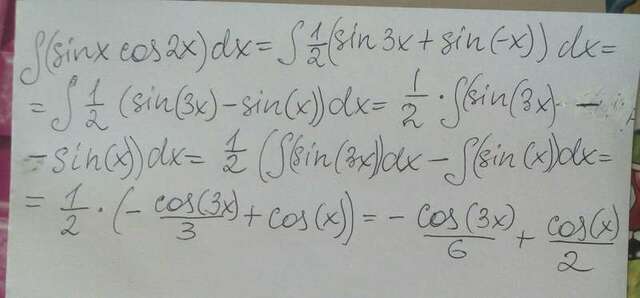 ∫(sinx cos2x)dx = ∫ 1/2 (sin 3x + sin(-x)) dx =
= ∫ 1/2 (sin(3x) - sin(x)) dx = 1/2 · ∫(sin(3x) -
- sin(x)) dx = 1/2 (∫(sin(3x))dx - ∫(sin(x))dx =
= 1/2 · (- cos(3x)/3 + cos(x)) = - cos(3x)/6 + cos(x)/2